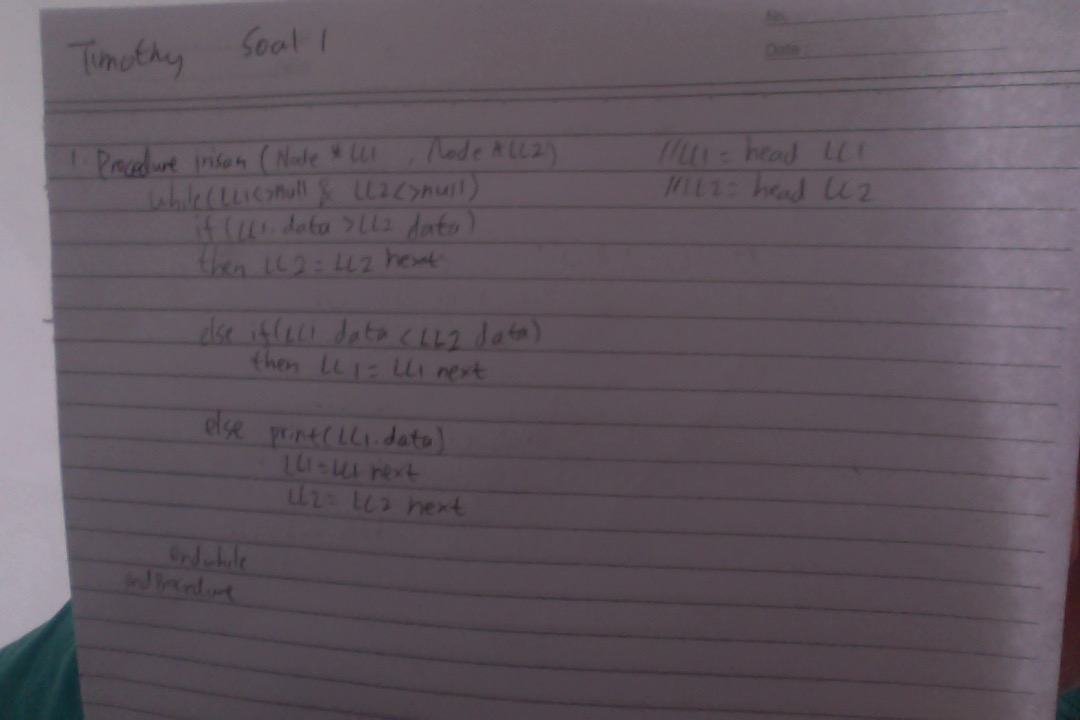 Timothy Soal 1
No.
Date:
1. Procedure irisan (Node *LL1, Node *LL2) //LL1 = head LL1
while(LL1<>null & LL2<>null) //LL2 = head LL2
if (LL1.data >LL2 data)
then LL2 = LL2 next
else if(LL1 data < LL2 data)
then LL1 = LL1 next
else print(LL1.data)
LL1=LL1 next
LL2= LL2 next
endwhile
endprocedure